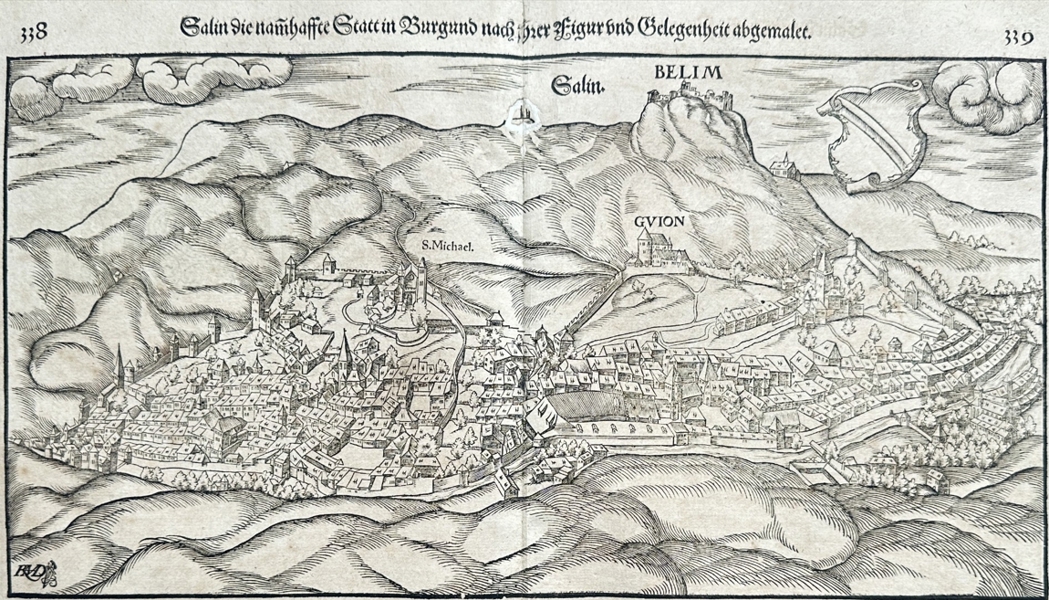 338
Salin die nam̃haffte Statt in Burgund nach jhrer Figur vnd Gelegenheit abgemalet.
339
Salin.
BELIM
GVION
S. Michael.